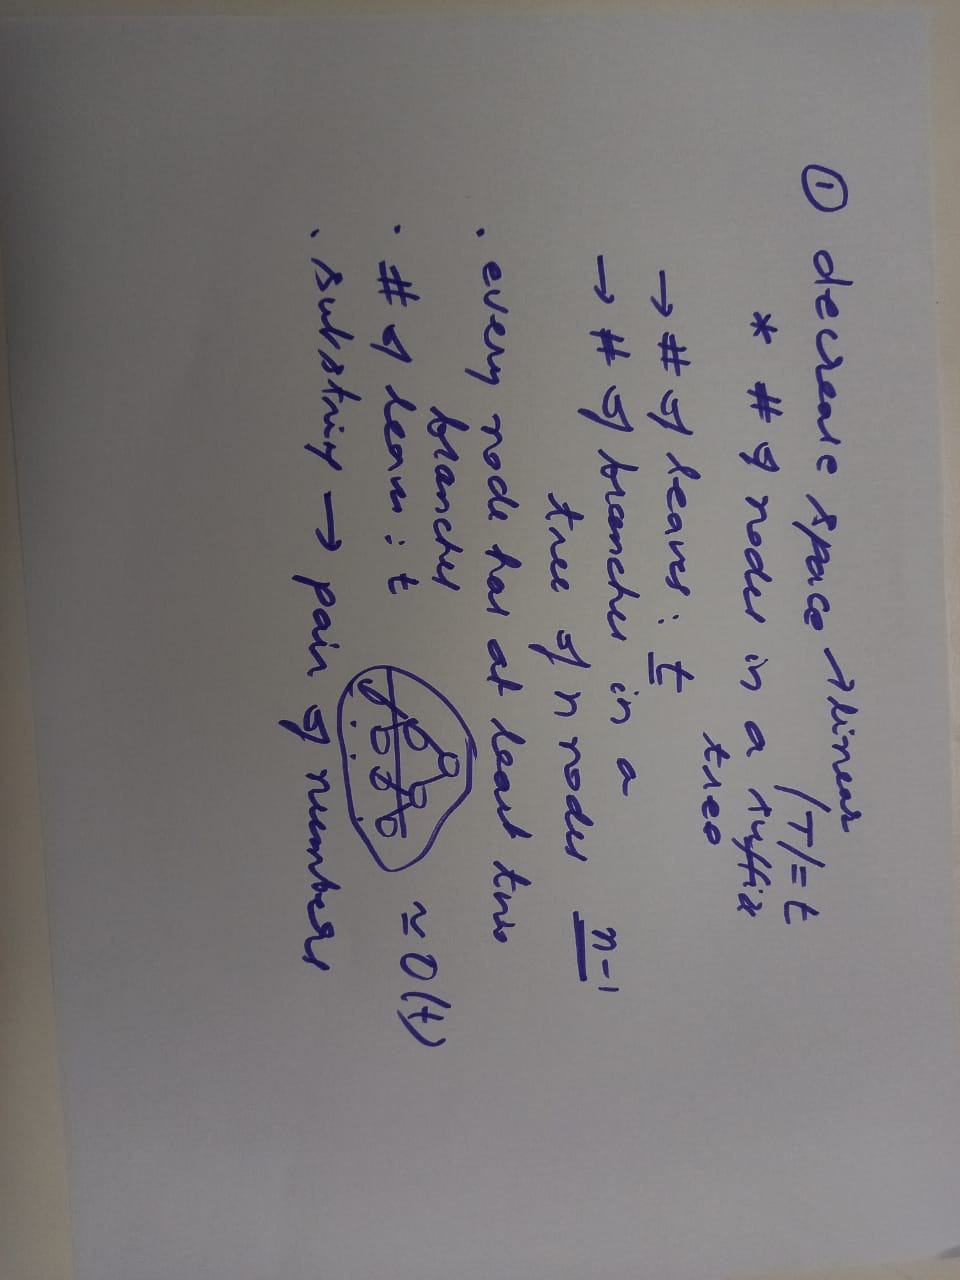 ① decrease space → linear
|T| = t
* # of nodes in a suffix
tree
→ # of leaves : t
→ # of branches in a
tree of n nodes n-1
. every node has at least two
branches
. # of leaves : t ≈ O(t)
. substring → pair of numbers